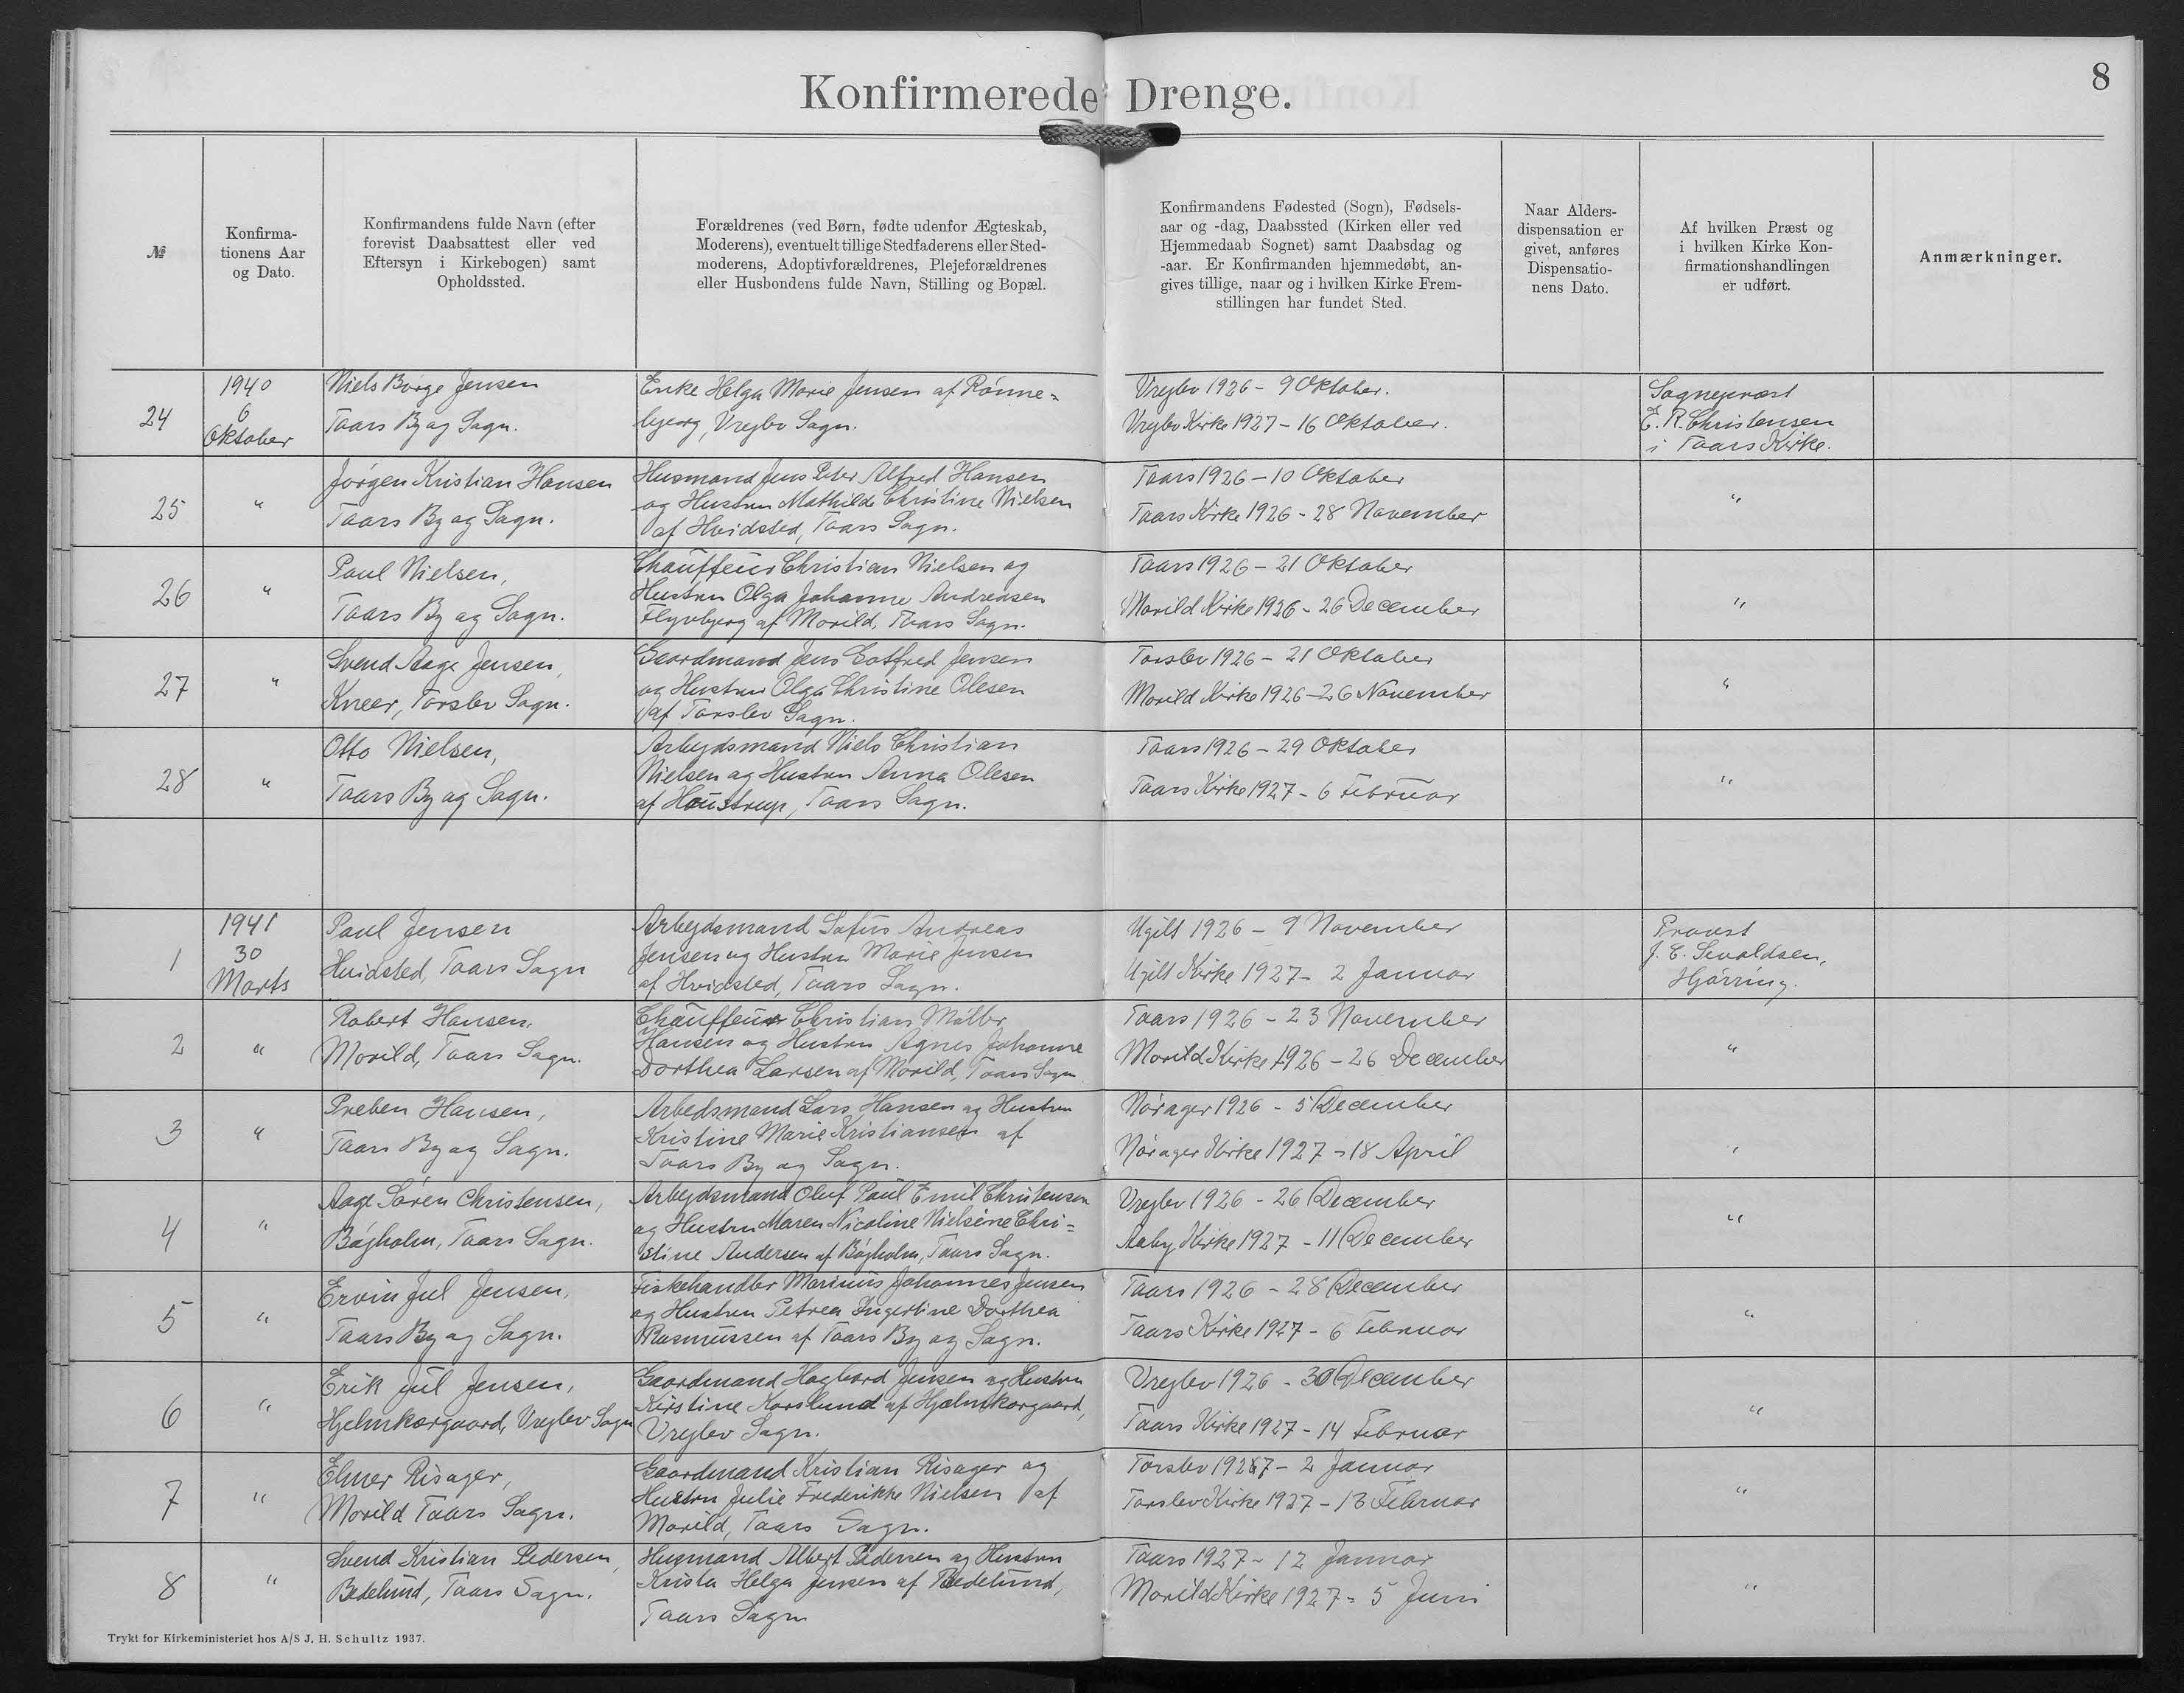 Konfirmerede Drenge.
8
№
Konfirma-
tionens Aar
og Dato.
Konfirmandens fulde Navn (efter
forevist Daabsattest eller ved
Eftersyn i Kirkebogen) samt
Opholdssted.
Forældrenes (ved Børn, fødte udenfor Ægteskab,
Moderens), eventuelt tillige Stedfaderens eller Sted-
moderens, Adoptivforældrenes, Plejeforældrenes
eller Husbondens fulde Navn, Stilling og Bopæl.
Konfirmandens Fødested (Sogn), Fødsels-
aar og -dag, Daabssted (Kirken eller ved
Hjemmedaab Sognet) samt Daabsdag og
-aar. Er Konfirmanden hjemmedøbt, an-
gives tillige, naar og i hvilken Kirke Frem-
stillingen har fundet Sted.
Naar Alders-
dispensation er
givet, anføres
Dispensatio-
nens Dato.
Af hvilken Præst og
i hvilken Kirke Kon-
firmationshandlingen
er udført.
Anmærkninger.
24
1940
6
Oktober
Niels Børge Jensen
Taars By og Sogn.
Enke Helga Marie Jensen af Rønne=
bjerg, Vrejlev Sogn.
Vrejlev 1926 - 9 Oktober.
Vrejlev Kirke 1927 - 16 Oktober.
Sognepræst
E. R. Christensen
i Taars Kirke.
25
"
Jörgen Kristian Hansen
Taars By og Sogn.
Husmand Jens Peter Alfred Hansen
og Hustru Mathilde Christine Nielsen
af Hvidsted, Taars Sogn.
Taars 1926 - 10 Oktober
Taars Kirke 1926 - 28 November
"
26
"
Poul Nielsen,
Taars By og Sogn.
Chauffeur Christian Nielsen og
Hustru Olga Johanne Andreasen
Flyvbjerg af Morild, Taars Sogn.
Taars 1926 - 21 Oktober
Morild Kirke 1926 - 26 December
"
27
"
Svend Aage Jensen,
Kneer, Torslev Sogn.
Gaardmand Jens Gotfred Jensen
og Hustru Olga Christine Olesen
af Torslev Sogn.
Torslev 1926 - 21 Oktober
Morild Kirke 1926 - 26 November
"
28
"
Otto Nielsen,
Taars By og Sogn.
Arbejdsmand Niels Christian
Nielsen og Hustru Anna Olesen
af Houstrup, Taars Sogn.
Taars 1926 - 29 Oktober
Taars Kirke 1927 - 6 Februar
"
1
1941
30
Marts
Poul Jensen
Hvidsted, Taars Sogn
Arbejdsmand Sofus Andreas
Jensen og Hustru Marie Jensen
af Hvidsted, Taars Sogn.
Ugilt 1926 - 9 November
Ugilt Kirke 1927 - 2 Januar
Provst
Hjørring.
2
"
Robert Hansen,
Morild, Taars Sogn.
Chauffeur Christian Møller
Hansen og Hustru Agnes Johanne
Dorthea Larsen af Morild, Taars Sogn
Taars 1926 - 23 November
Morild Kirke 1926 - 26 December
"
3
"
Preben Hansen,
Taars By og Sogn.
Arbedsmand Lars Hansen og Hustru
Kristine Marie Kristiansen af
Taars By og Sogn.
Nørager 1926 - 5 December
Nørager Kirke 1927 - 18 April
"
4
"
Aage Sören Christensen,
Bøgholm, Taars Sogn.
Arbejdsmand Oluf Poul Emil Christensen
og Hustru Maren Nicoline Nielsine Chri=
stine Andersen af Bøgholm, Taars Sogn.
Vrejlev 1926 - 26 December
Aaby Kirke 1927 - 11 December
"
5
"
Ervin Jul Jensen,
Taars By og Sogn.
Fiskehandler Marinus Johannes Jensen
og Hustru Petrea Ingertine Dorthea
Rasmussen af Taars By og Sogn.
Taars 1926 - 28 December
Taars Kirke 1927 - 6 Februar
"
6
"
Erik Jul Jensen,
Hjelmkærgaard, Vrejlev Sogn
Gaardmand Hagbard Jensen og Hustru
Kirstine Korslund af Hjelmkærgaard,
Vrejlev Sogn.
Vrejlev 1926 - 30 December
Taars Kirke 1927 - 14 Februar
"
7
"
Elmer Risager,
Morild Taars Sogn.
Gaardmand Kristian Risager og
Hustru Julie Frederikke Nielsen af
Morild, Taars Sogn.
Torslev 1927 - 2 Januar
Torslev Kirke 1927 - 13 Februar
"
8
"
Svend Kristian Pedersen,
Bedelund, Taars Sogn.
Husmand Albert Pedersen og Hustru
Krista Helga Jensen af Bedelund,
Taars Sogn
Taars 1927 - 12 Januar
Morild Kirke 1927 - 5 Juni
"
Trykt for Kirkeministeriet hos A/S J. H. Schultz 1937.